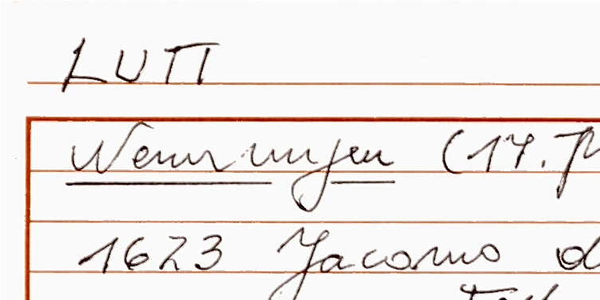 LUTI
Nennungen (17.
1623 Jacomo d